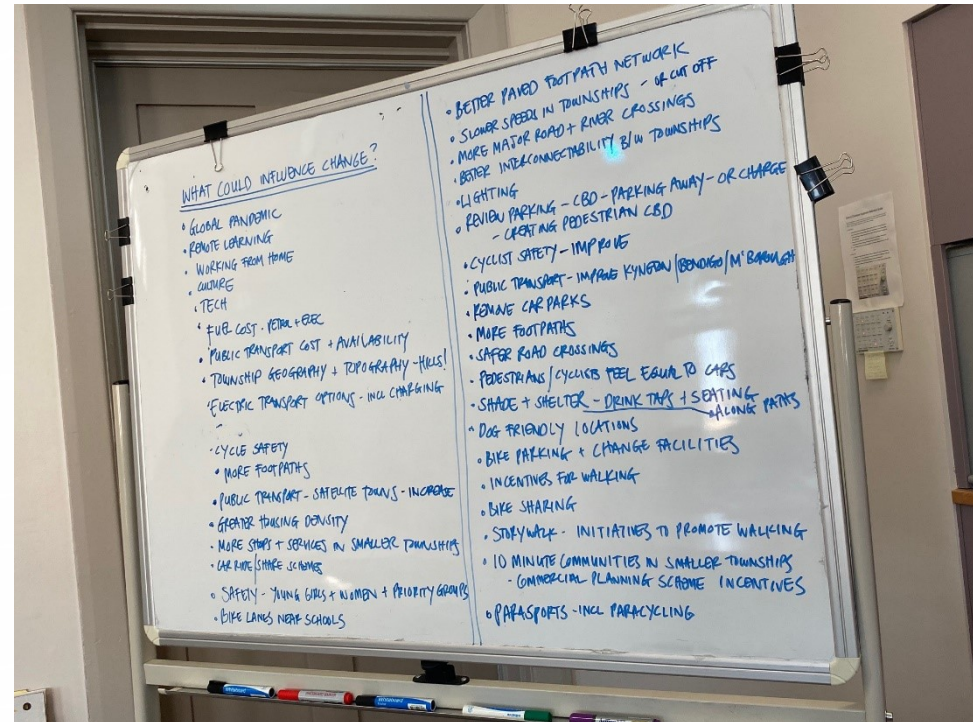 WHAT COULD INFLUENCE CHANGE?
• GLOBAL PANDEMIC
• REMOTE LEARNING
• WORKING FROM HOME
• CULTURE
• TECH
• FUEL COST - PETROL + ELEC
• PUBLIC TRANSPORT COST + AVAILABILITY
• TOWNSHIP GEOGRAPHY + TOPOGRAPHY - HILLS!
• ELECTRIC TRANSPORT OPTIONS - INCL CHARGING
• CYCLE SAFETY
• MORE FOOTPATHS
• PUBLIC TRANSPORT - SATELLITE TOWNS - INCREASE
• GREATER HOUSING DENSITY
• MORE SHOPS + SERVICES IN SMALLER TOWNSHIPS
• CAR RIDE/SHARE SCHEMES
• SAFETY - YOUNG GIRLS + WOMEN + PRIORITY GROUPS
• BIKE LANES NEAR SCHOOLS
• BETTER PAVED FOOTPATH NETWORK
• SLOWER SPEEDS IN TOWNSHIPS - OR CUT OFF
• MORE MAJOR ROAD + RIVER CROSSINGS
• BETTER INTERCONNECTABILITY B/W TOWNSHIPS
• LIGHTING
• REVIEW PARKING - CBD - PARKING AWAY - OR CHARGE
- CREATING PEDESTRIAN CBD
• CYCLIST SAFETY - IMPROVE
• PUBLIC TRANSPORT - IMPROVE KYNETON/BENDIGO/M'BOROUGH
• REMOVE CAR PARKS
• MORE FOOTPATHS
• SAFER ROAD CROSSINGS
• PEDESTRIANS/CYCLISTS FEEL EQUAL TO CARS
• SHADE + SHELTER - DRINK TAPS + SEATING
ALONG PATHS
• DOG FRIENDLY LOCATIONS
• BIKE PARKING + CHANGE FACILITIES
• INCENTIVES FOR WALKING
• BIKE SHARING
• STORYWALK - INITIATIVES TO PROMOTE WALKING
• 10 MINUTE COMMUNITIES IN SMALLER TOWNSHIPS
- COMMERCIAL PLANNING SCHEME INCENTIVES
• PARASPORTS - INCL PARACYCLING